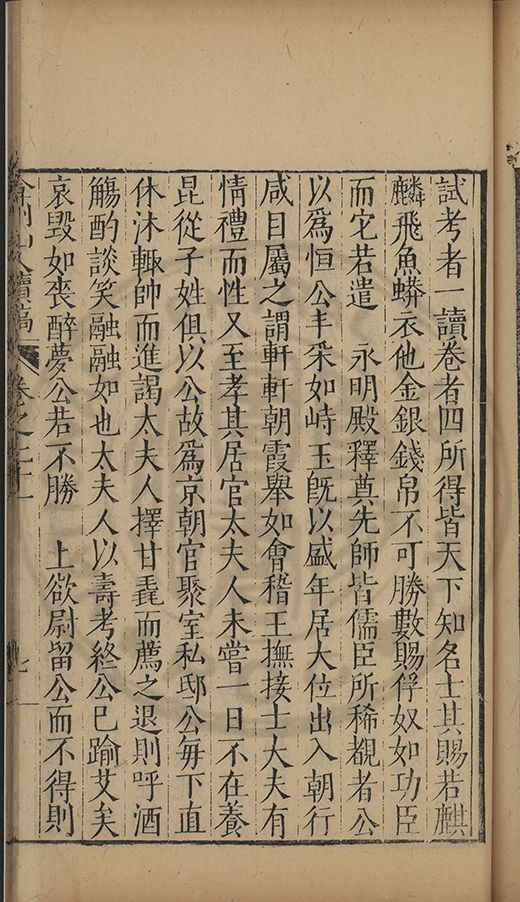 試考者一讀卷者四所得皆天下知名士其賜若麒
麟飛魚蟒衣他金銀錢帛不可勝數賜俘奴如功臣
而它若遣　永明殿釋尊先師皆儒臣所稀覩者公
以爲恒公丰采如峙玉旣以盛年居大位出入朝行
咸目屬之謂軒軒朝霞舉如會稽王撫接士大夫有
情禮而性又至孝其居官太夫人未嘗一日不在養
昆從子姓俱以公故爲京朝官聚室私邸公每下直
休沐輙帥而進謁太夫人擇甘毳而薦之退則呼酒
觴酌談笑融融如也太夫人以壽考終公已踰艾矣
哀毀如喪醉夢公若不勝　上欲尉留公而不得則
續稿　卷之
七